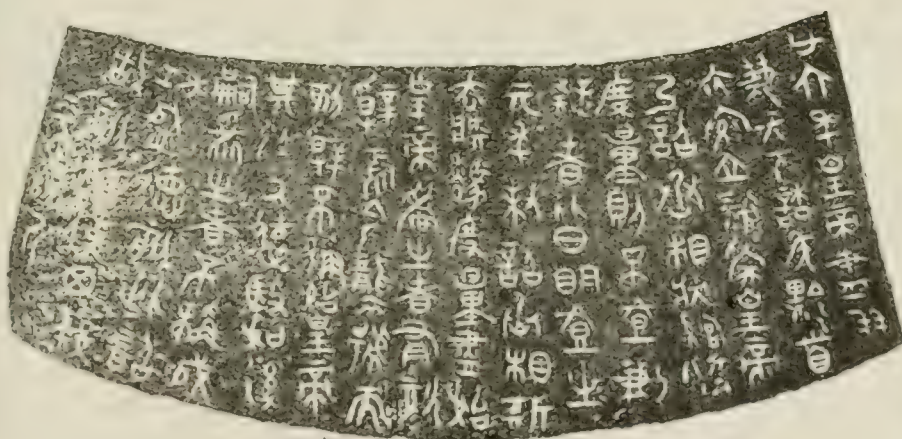 廿六年皇帝盡并
兼天下諸侯黔首
大安立號爲皇帝
乃詔丞相狀綰灋
度量則不壹歉
疑者皆明壹之
元年制詔丞相斯
去疾灋度量盡始
皇帝爲之皆有刻
辭焉今襲號而
刻辭不稱始皇帝
其於久遠殹如後
嗣爲之者不稱成
功盛德刻此詔
故刻左使毋疑